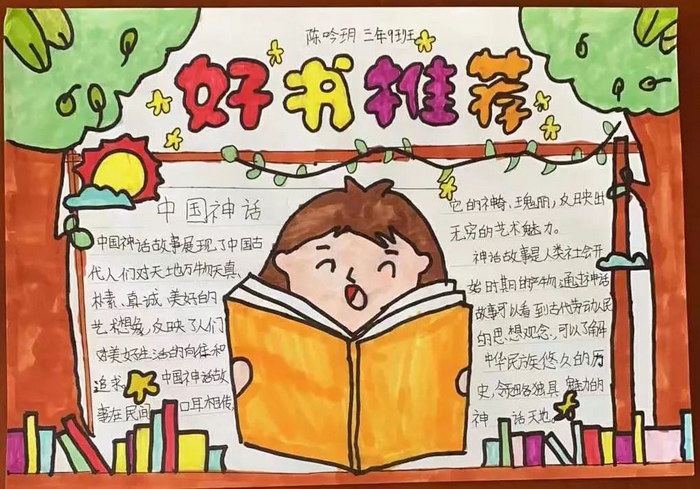 陈吟玥 三年9班
好书推荐
中国神话
中国神话故事展现了中国古
代人们对天地万物天真、
朴素、真诚、美好的
艺术想象,反映了人们
对美好生活的向往和
追求。中国神话故
事在民间 口耳相传,
它的神奇、瑰丽,反映出
无穷的艺术魅力。
神话故事是人类社会开
始时期的产物,通过神话
故事可以看到古代劳动人民
的思想观念,可以了解
中华民族悠久的历
史,领略独具魅力的
神 话天地。